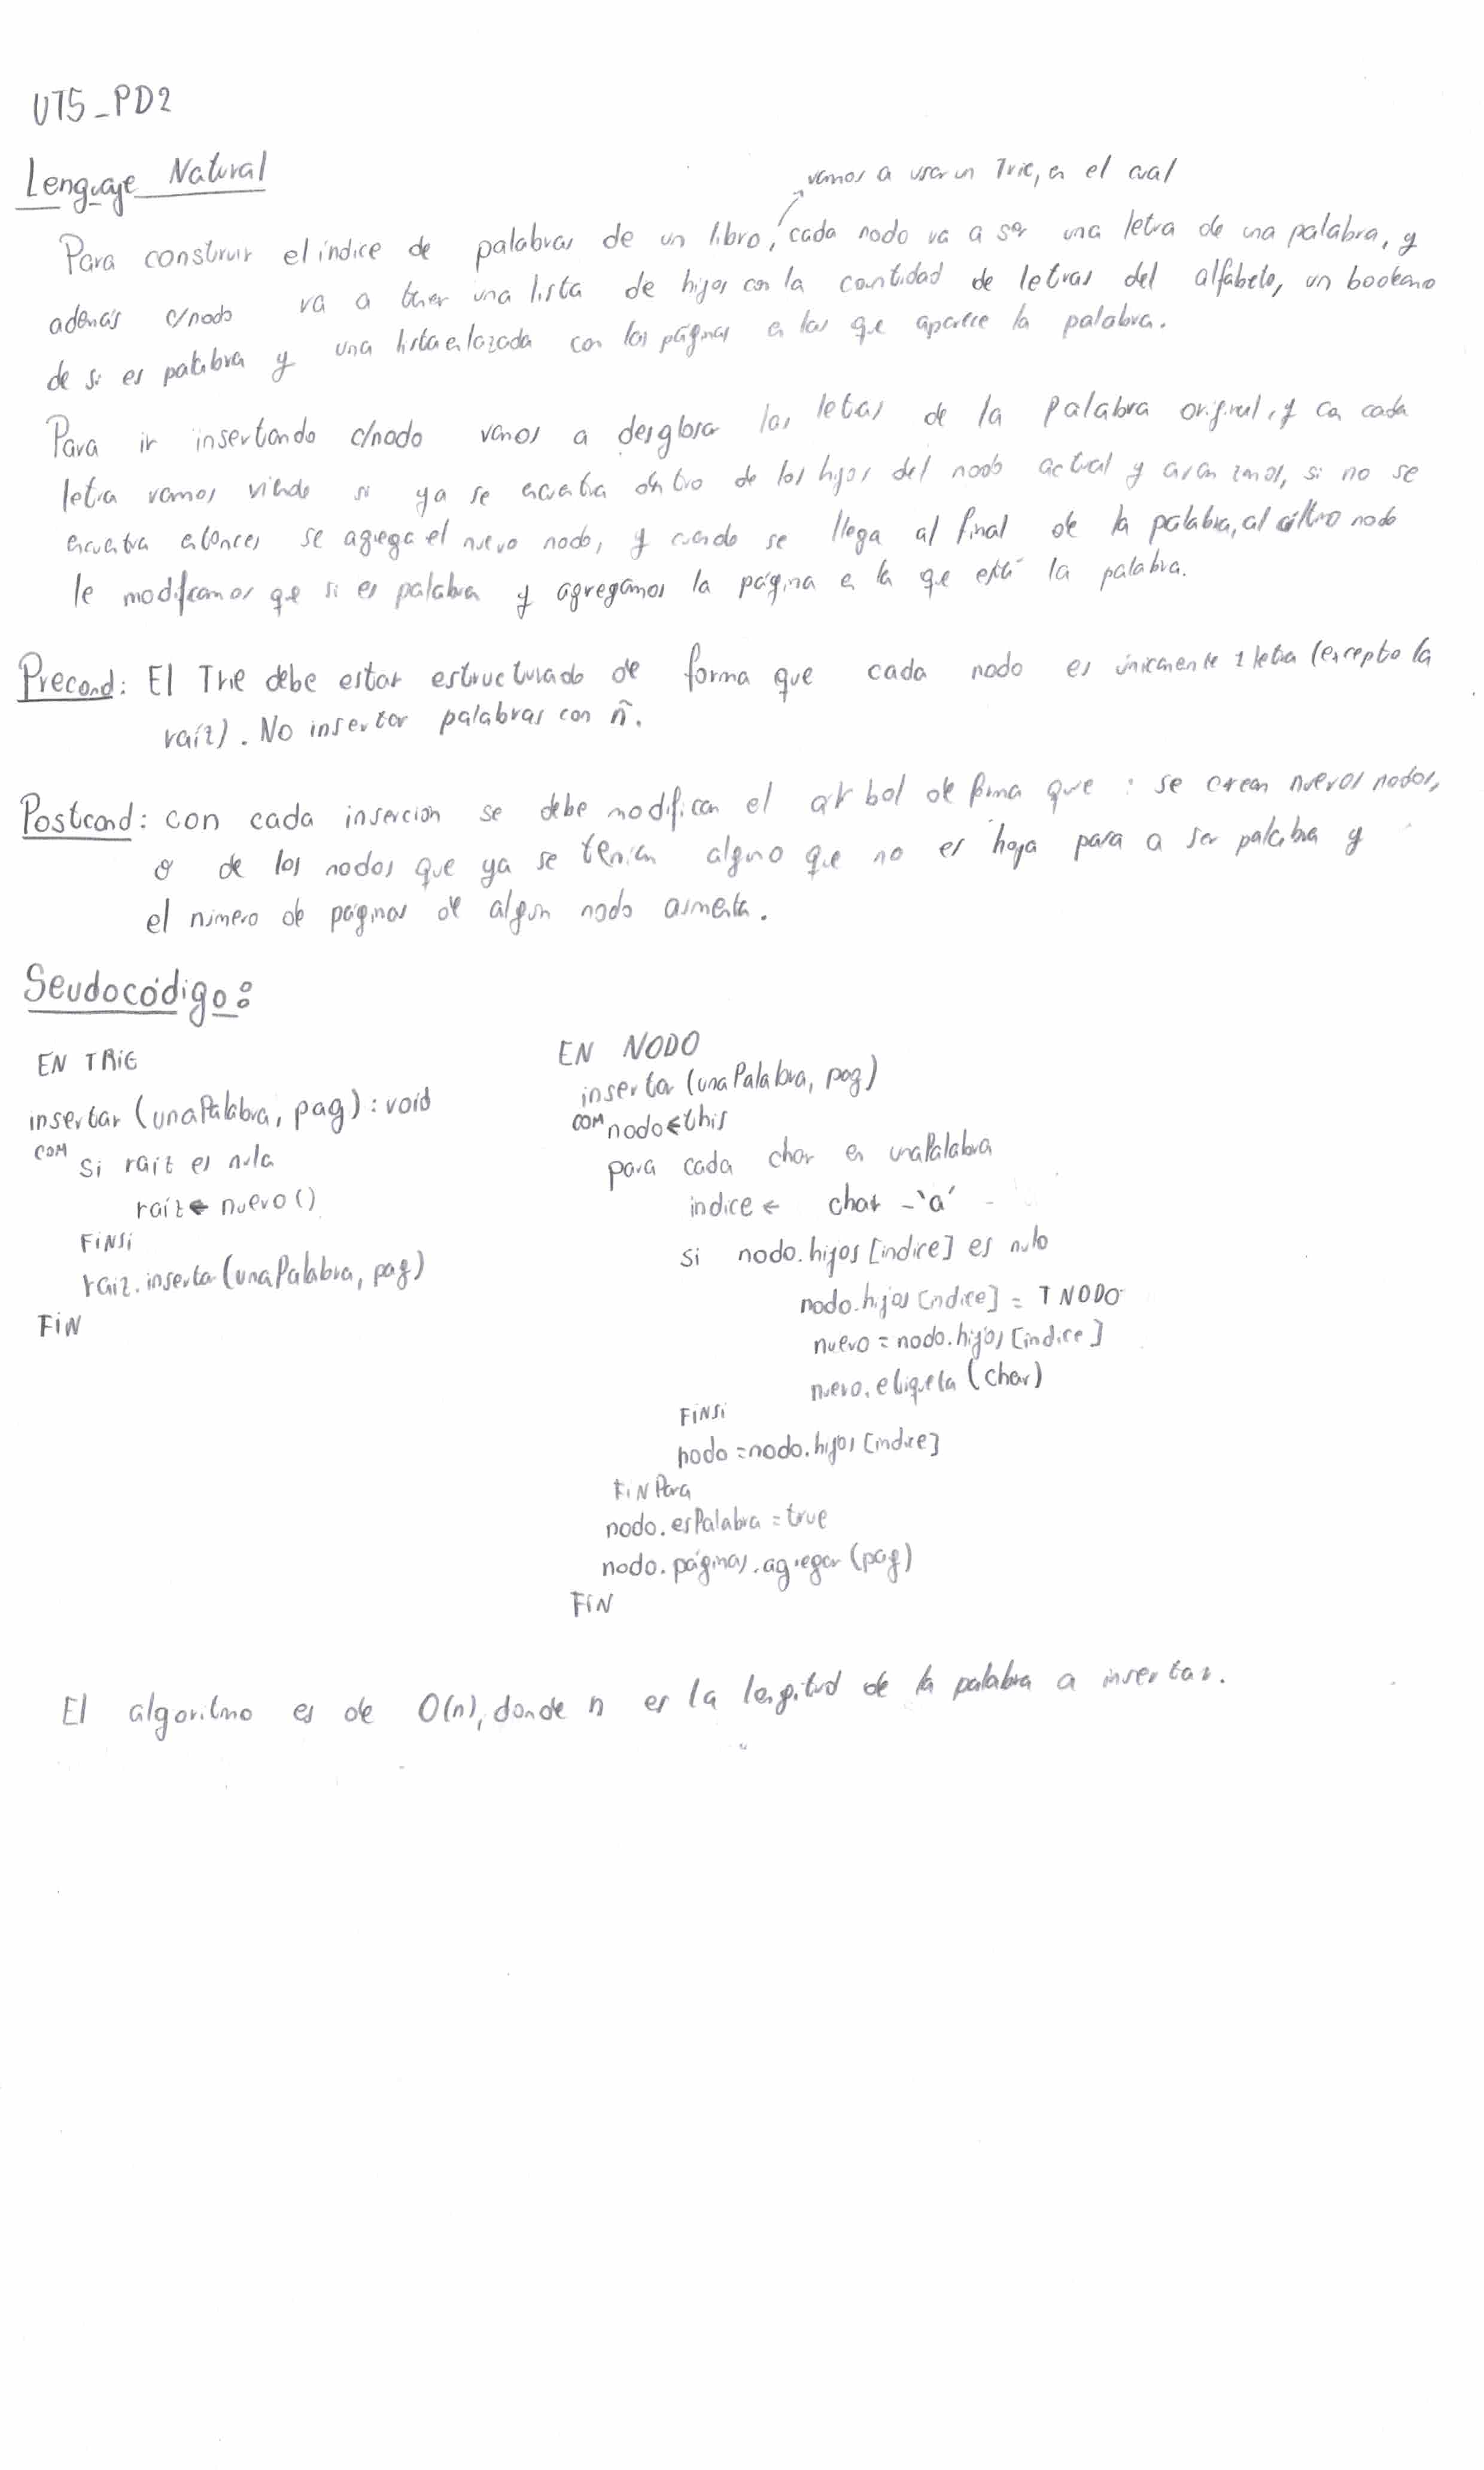 UT5_PD2
Lenguaje Natural
vamos a usar un Trie, en el cual
Para construir el índice de palabras de un libro, cada nodo va a ser una letra de una palabra, y
además c/nodo va a tener una lista de hijos con la cantidad de letras del alfabeto, un booleano
de si es palabra y una lista enlazada con las páginas en las que aparece la palabra.
Para ir insertando c/nodo vamos a desglosar las letras de la palabra original, y con cada
letra vamos viendo si ya se encuentra dentro de los hijos del nodo actual y avanzamos, si no se
encuentra entonces se agrega el nuevo nodo, y cuando se llega al final de la palabra, al último nodo
le modificamos que si es palabra y agregamos la página en la que está la palabra.
Precond: El Trie debe estar estructurado de forma que cada nodo es únicamente 1 letra (excepto la
raíz). No insertar palabras con ñ.
Postcond: con cada inserción se debe modificar el arbol de forma que : se crean nuevos nodos,
o de los nodos que ya se tenían alguno que no es hoja pasa a ser palabra y
el número de páginas de algún nodo aumenta.
Seudocódigo:
EN TRiE
insertar (unaPalabra, pag) : void
COM
Si raiz es nula
raíz ← nuevo ()
FiNSi
raiz.insertar (unaPalabra, pag)
FiN
EN NODO
insertar (unaPalabra, pag)
COM nodo ← this
para cada char en unaPalabra
indice ← char - 'a'
si nodo.hijos [indice] es nulo
nodo.hijos [indice] = TNODO
nuevo = nodo.hijos [indice]
nuevo.etiqueta (char)
FiNSi
nodo = nodo.hijos [indice]
FiN Para
nodo.esPalabra = true
nodo.páginas.agregar (pag)
FiN
El algoritmo es de O(n), donde n es la longitud de la palabra a insertar.